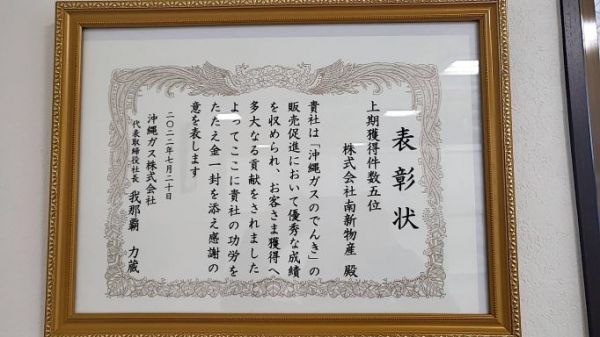 表彰状
上期獲得件数五位
株式会社南新物産 殿
貴社は「沖縄ガスのでんき」の
販売促進において優秀な成績
を収められ、お客さま獲得へ
多大なる貢献をされました
よってここに貴社の功労を
たたえ金一封を添え感謝の
意を表します
二〇二二年七月二十日
沖縄ガス株式会社
代表取締役社長 我那覇 力蔵